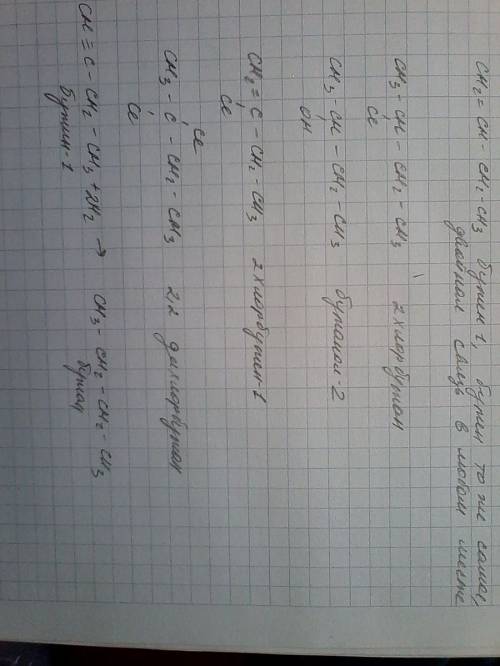 CH₂ = CH - CH₂ - CH₃ бутен 1, бутен то же самое,
двойная связь в любом месте
CH₃ - CH - CH₂ - CH₃ 2 хлорбутан
Cl
CH₃ - CH - CH₂ - CH₃ бутанол-2
OH
CH₂ = C - CH₂ - CH₃ 2 хлорбутен-1
Cl
Cl
CH₃ - C - CH₂ - CH₃ 2,2 дихлорбутан
Cl
CH ≡ C - CH₂ - CH₃ + 2H₂ → CH₃ - CH₂ - CH₂ - CH₃
Бутин-1 бутан